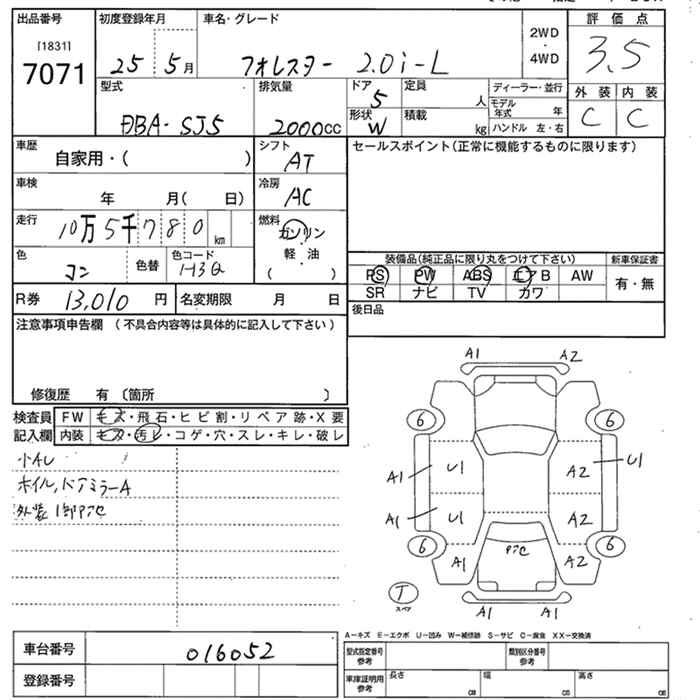 出品番号 初度登録年月 車名・グレード 2WD・4WD 評価点
[1831]
7071 25 5月 フォレスター 2.0i-L 3.5
型式 排気量 ドア 5 定員 人 ディーラー・並行 外装 内装
DBA-SJ5 2000cc 形状 W 積載 kg モデル年式 年 C C
ハンドル 左・右
車歴 自家用・( ) シフト AT セールスポイント(正常に機能するものに限ります)
車検 年 月( 日) 冷房 AC
走行 10万5千780km 燃料 ガソリン
軽・油
( )
色 コン 色替 色コード
装備品(純正品に限り丸をつけて下さい) 新車保証書
PS PW ABS エアB AW 有・無
SR ナビ TV カワ
R券 13,010円 名変期限 月 日 後日品
注意事項申告欄(不具合内容等は具体的に記入して下さい)
修復歴 有 〔箇所 〕
検査員 FW キズ・飛石・ヒビ割・リペア跡・X要
記入欄 内装 キズ・汚レ・コゲ・穴・スレ・キレ・破レ
小AU
ホイル,ドアミラーA
外装1部PTC
A1 A2
6 6
A1 U1 A2 U1
A1 U1 A2
6 A1 PTC A2 6
T
スペア
A1 A1
A-キズ E-エクボ U-凹み W-補修跡 S-サビ C-腐食 XX-交換済
車台番号 016052 型式指定番号 参考 類別区分番号 参考
登録番号 車庫証明用 参考 長さ cm 幅 cm 高さ cm